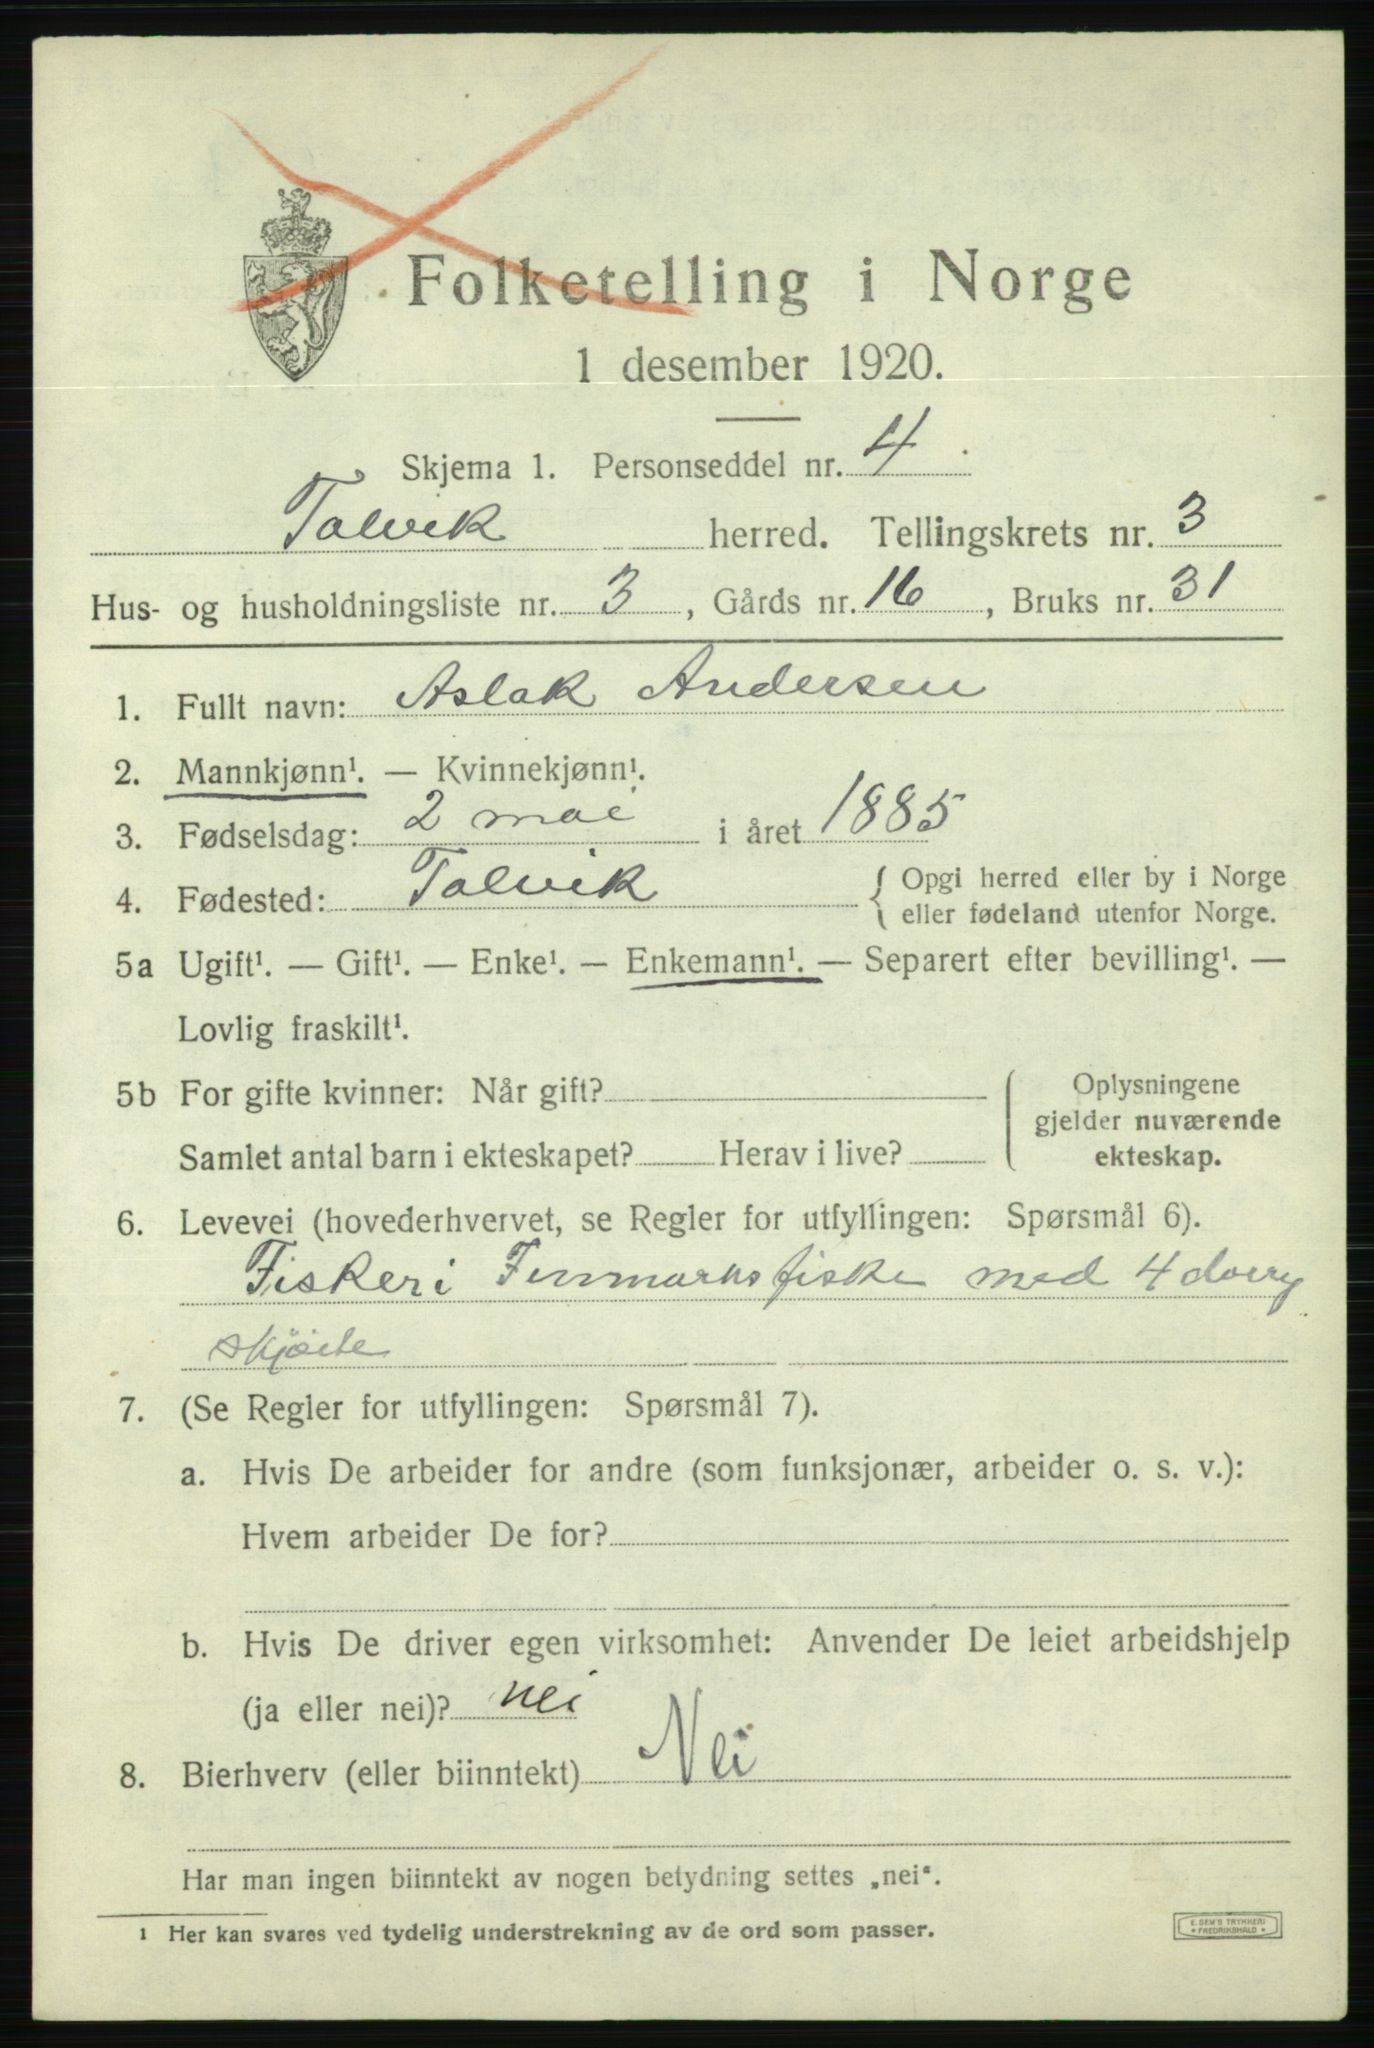 Folketelling i Norge
1 desember 1920.
Skjema 1. Personseddel nr. 4
Talvik herred. Tellingskrets nr. 3
Hus- og husholdningsliste nr. 3, Gårds nr. 16, Bruks nr. 31
1. Fullt navn: Aslak Andersen
2. Mannkjønn¹. — Kvinnekjønn¹.
3. Fødselsdag: 2 mai i året 1885
4. Fødested: Talvik { Opgi herred eller by i Norge
eller fødeland utenfor Norge.
5a Ugift¹. — Gift¹. — Enke¹. — Enkemann¹. — Separert efter bevilling¹. —
Lovlig fraskilt¹.
5b For gifte kvinner: Når gift?
Samlet antal barn i ekteskapet? Herav i live?
Oplysningene
gjelder nuværende
ekteskap.
6. Levevei (hovederhvervet, se Regler for utfyllingen: Spørsmål 6).
Fisker i Finmarksfiske med 4 dorry
skjöite
7. (Se Regler for utfyllingen: Spørsmål 7).
a. Hvis De arbeider for andre (som funksjonær, arbeider o. s. v.):
Hvem arbeider De for?
b. Hvis De driver egen virksomhet: Anvender De leiet arbeidshjelp
(ja eller nei)? nei
8. Bierhverv (eller biinntekt) Nei
Har man ingen biinntekt av nogen betydning settes „nei“.
1 Her kan svares ved tydelig understrekning av de ord som passer.
E. SEM'S TRYKKERI
FREDRIKSHALD